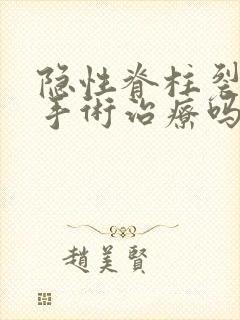 隐性脊柱裂
手術治療吗
趙美賢